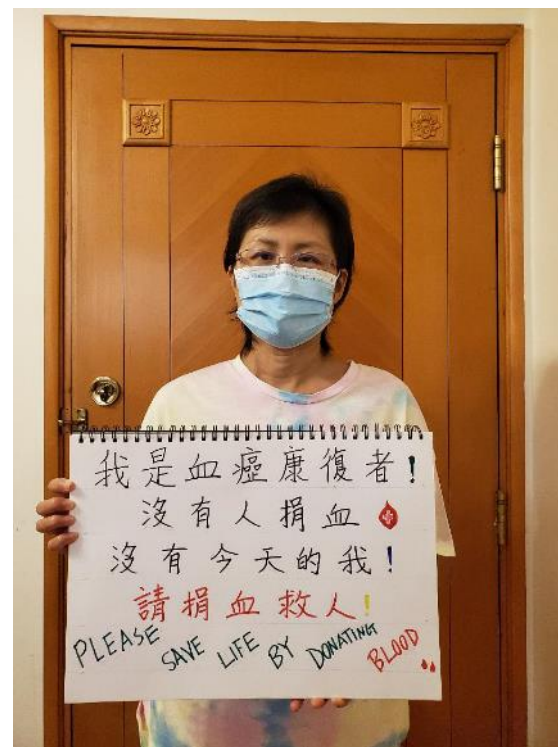 我是血癌康復者!
沒有人捐血
沒有今天的我!
請捐血救人!
PLEASE SAVE LIFE BY DONATING BLOOD